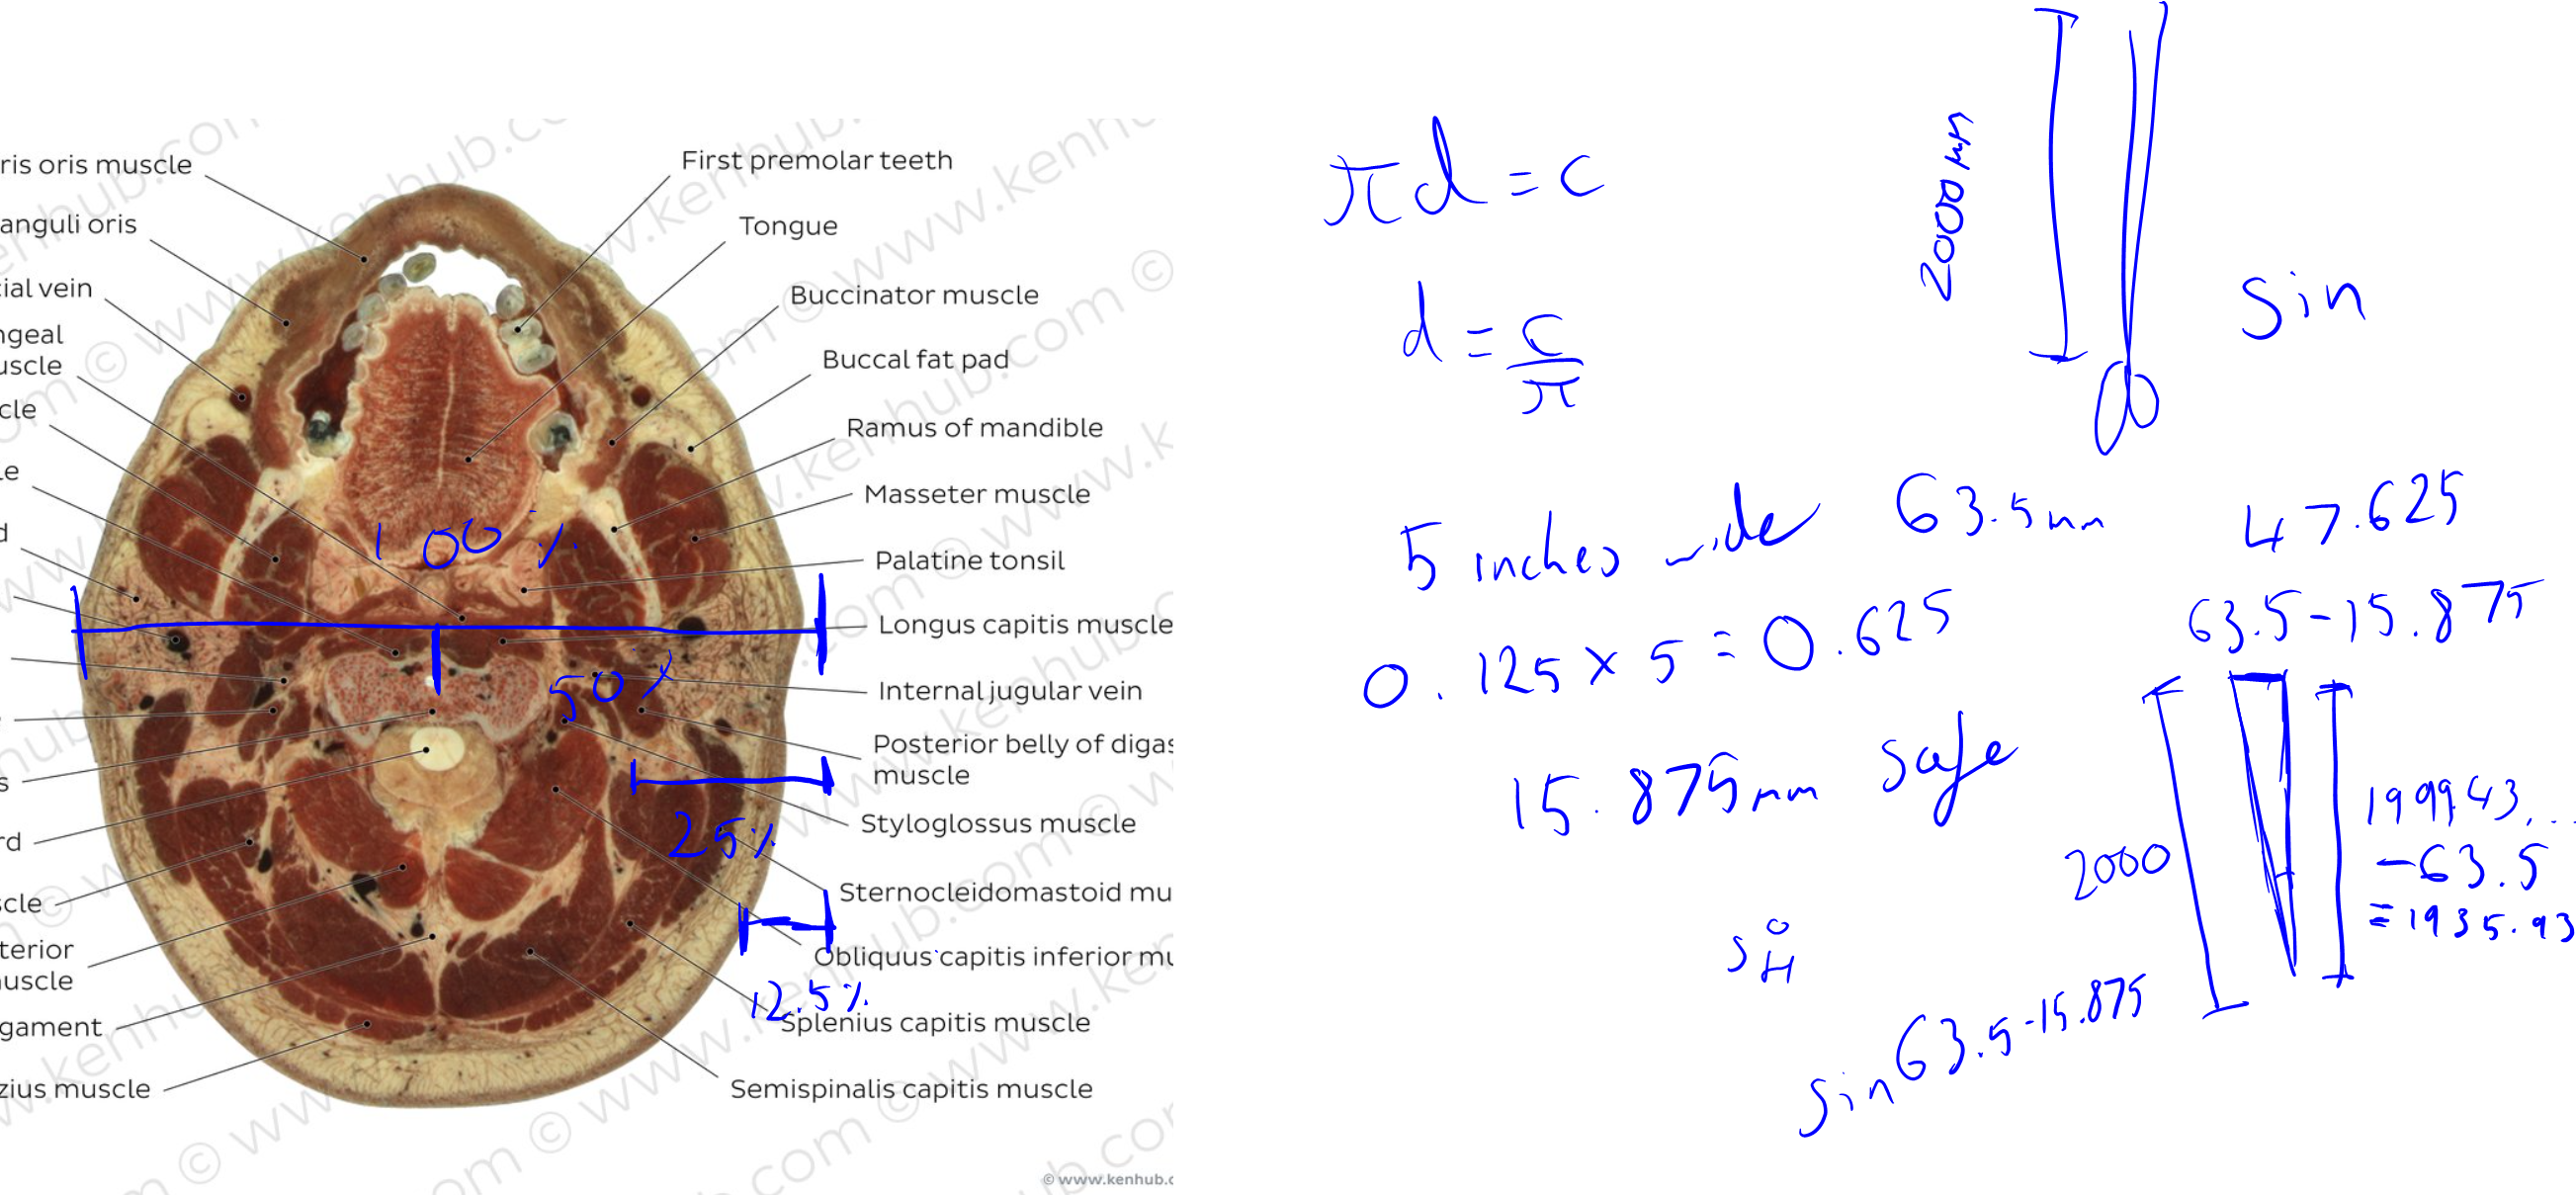 ris oris muscle
anguli oris
cial vein
ngeal
uscle
cle
le
d
s
rd
scle
terior
uscle
gament
zius muscle
First premolar teeth
Tongue
Buccinator muscle
Buccal fat pad
Ramus of mandible
Masseter muscle
Palatine tonsil
Longus capitis muscle
Internal jugular vein
Posterior belly of digas
muscle
Styloglossus muscle
Sternocleidomastoid mu
Obliquus capitis inferior mu
Splenius capitis muscle
Semispinalis capitis muscle
100%
50%
25%
12.5%
© www.kenhub.c
πd = c
d = c/π
2000mm
sin
5 inches wide
63.5mm
47.625
0.125 x 5 = 0.625
63.5-15.875
15.875mm safe
2000
199943...
-63.5
=1935.93
SOH
sin 63.5-15.875